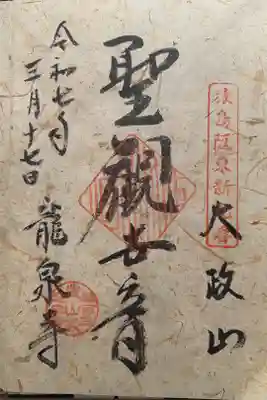 猿島阪東
大政山
聖観世音
令和七年
三月十七日
龍泉寺